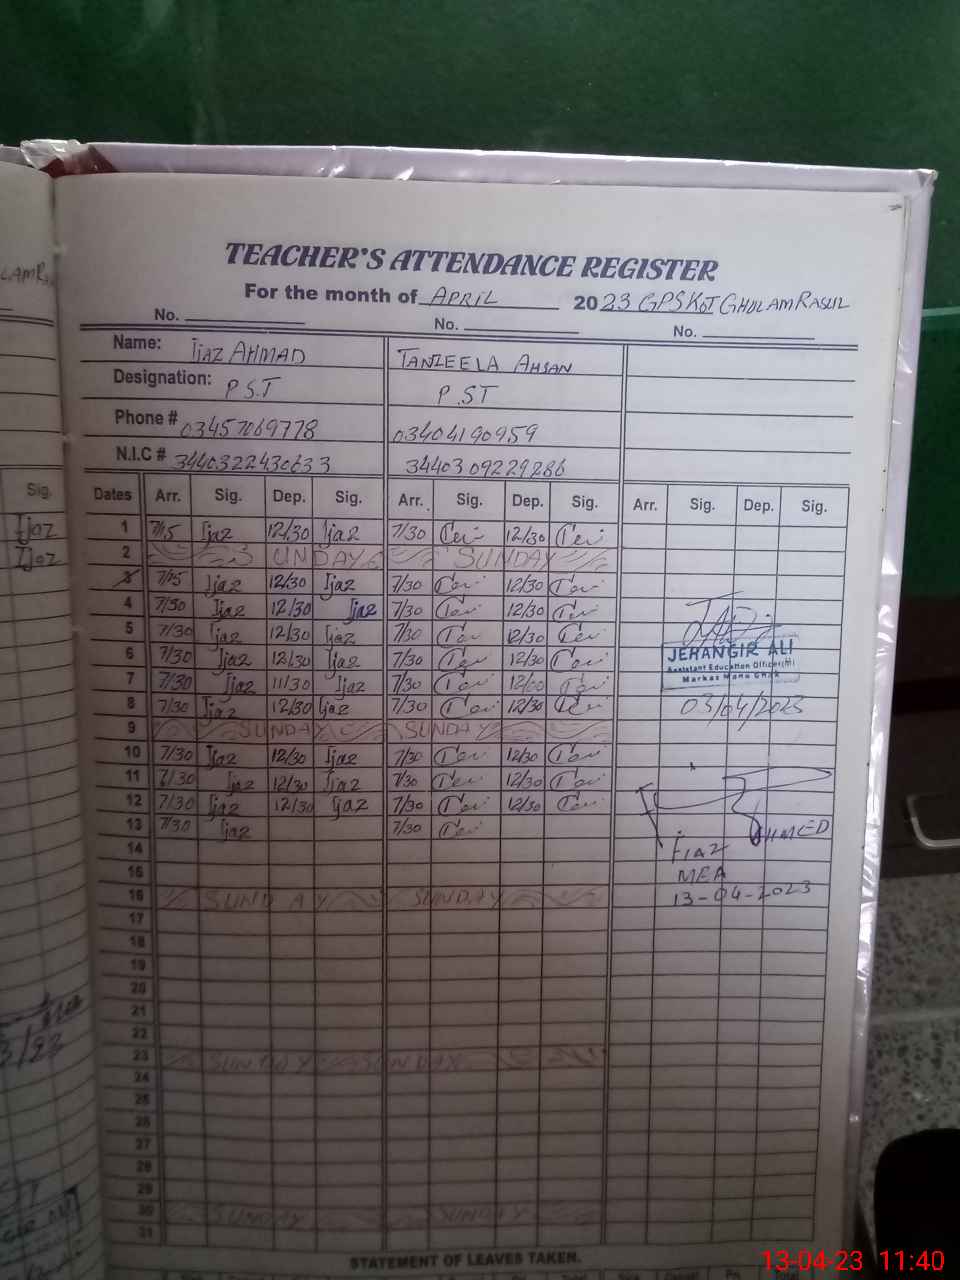 TEACHER'S ATTENDANCE REGISTER
For the month of APRIL 2023 GPS KOT GHULAM RASUL
No. No. No.
Name: IJAZ AHMAD TANZEELA AHSAN
Designation: P S.T P.ST
Phone # 03457069778 03404190959
N.I.C # 3440322430633 3440309229286
Sig. Dates Arr. Sig. Dep. Sig. Arr. Sig. Dep. Sig. Arr. Sig. Dep. Sig.
Ijaz 1 7/15 Ijaz 12/30 Ijaz 7/30 12/30
Ijaz 2 SUNDAY SUNDAY
3 7/15 Ijaz 12/30 Ijaz 7/30 12/30
4 7/30 Ijaz 12/30 Ijaz 7/30 12/30
5 7/30 Ijaz 12/30 Ijaz 7/30 12/30
6 7/30 Ijaz 12/30 Ijaz 7/30 12/30
7 7/30 Ijaz 11/30 Ijaz 7/30 12/00
8 7/30 Ijaz 12/30 Ijaz 7/30 12/30
9 SUNDAY SUNDAY
10 7/30 Ijaz 12/30 Ijaz 7/30 12/30
11 7/30 Ijaz 12/30 Ijaz 7/30 12/30
12 7/30 Ijaz 12/30 Ijaz 7/30 12/30
13 7/30 Ijaz 7/30
14
15
16 SUNDAY SUNDAY
17
18
19
20
21
22
23 SUNDAY SUNDAY
24
25
26
27
28
29
30 SUNDAY SUNDAY
31
JEHANGIR ALI
Assistant Education Officer(M)
Markaz Mana Ghak
03/04/2023
AHMED
FIAZ
MEA
13-04-2023
STATEMENT OF LEAVES TAKEN.
13-04-23 11:40